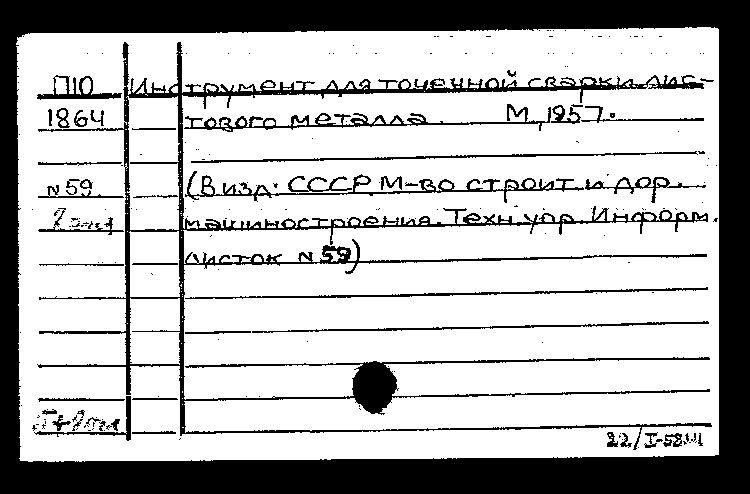 П10 Инструмент для точечной сварки лис-
1864 тового металла. М, 1957.
N 59. (В изд: СССР М-во строит и дор.
машиностроения. Техн. упр. Информ.
листок N 59)
22/I-58